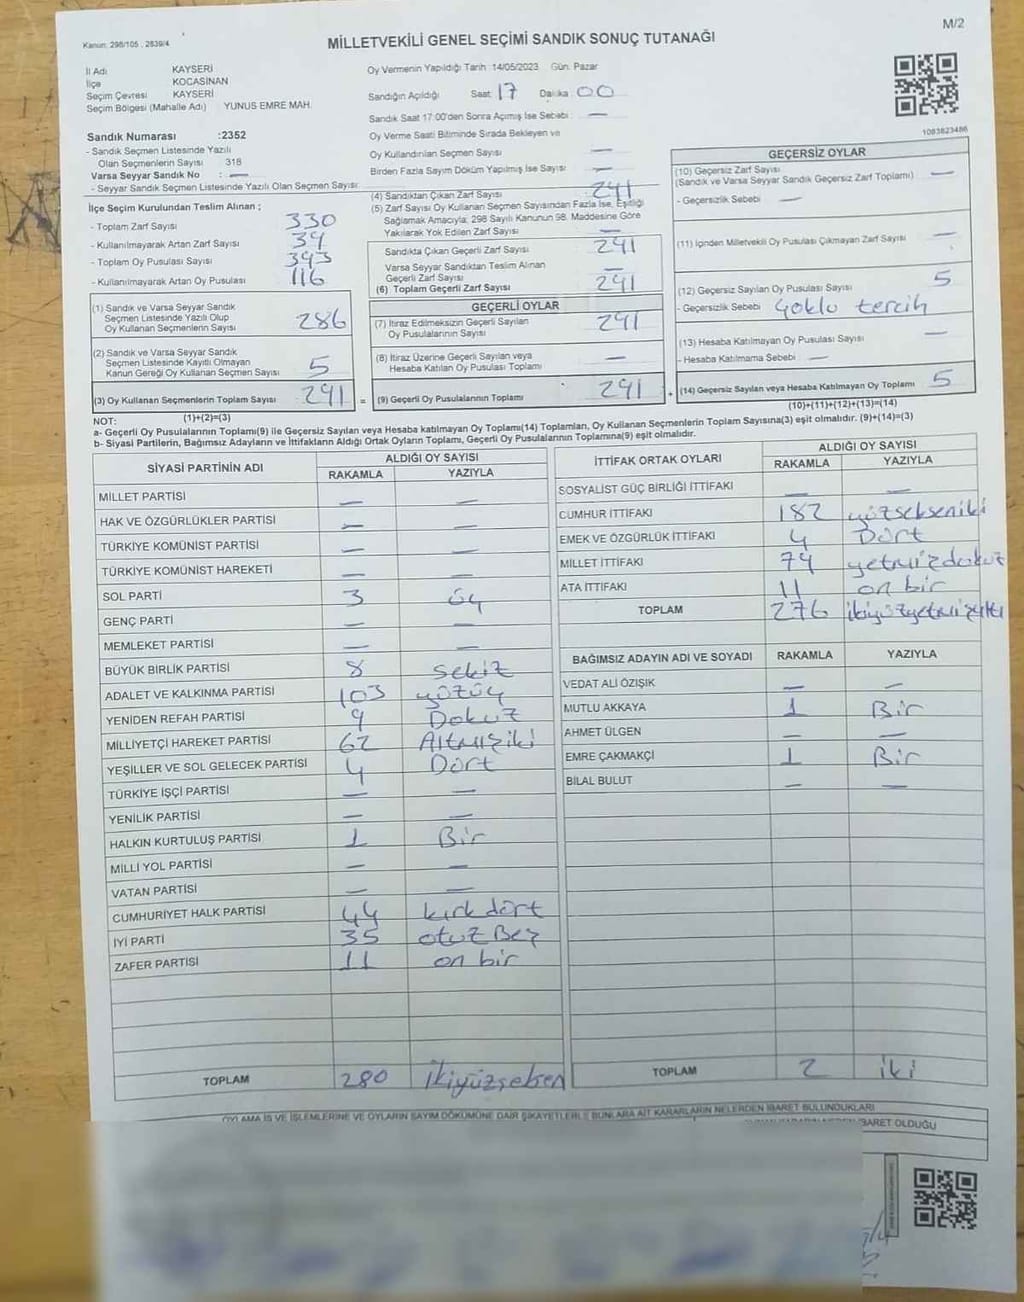 Kanun: 298/105 , 2839/4
M/2
MİLLETVEKİLİ GENEL SEÇİMİ SANDIK SONUÇ TUTANAĞI
İl Adı KAYSERİ
İlçe KOCASİNAN
Seçim Çevresi KAYSERİ
Seçim Bölgesi (Mahalle Adı) YUNUS EMRE MAH.
Sandık Numarası :2352
- Sandık Seçmen Listesinde Yazılı
Olan Seçmenlerin Sayısı 318
Varsa Seyyar Sandık No : —
- Seyyar Sandık Seçmen Listesinde Yazılı Olan Seçmen Sayısı
Oy Vermenin Yapıldığı Tarih :14/05/2023 Gün: Pazar
Sandığın Açıldığı Saat 17 Dakika 00
Sandık Saat 17:00'den Sonra Açılmış İse Sebebi : —
Oy Verme Saati Bitiminde Sırada Bekleyen ve
Oy Kullandırılan Seçmen Sayısı —
Birden Fazla Sayım Döküm Yapılmış İse Sayısı —
1083823486
İlçe Seçim Kurulundan Teslim Alınan ;
- Toplam Zarf Sayısı 330
- Kullanılmayarak Artan Zarf Sayısı 39
- Toplam Oy Pusulası Sayısı 393
- Kullanılmayarak Artan Oy Pusulası 116
(1) Sandık ve Varsa Seyyar Sandık
Seçmen Listesinde Yazılı Olup
Oy Kullanan Seçmenlerin Sayısı 286
(2) Sandık ve Varsa Seyyar Sandık
Seçmen Listesinde Kayıtlı Olmayan
Kanun Gereği Oy Kullanan Seçmen Sayısı 5
(3) Oy Kullanan Seçmenlerin Toplam Sayısı 291 =
(1)+(2)=(3)
(4) Sandıktan Çıkan Zarf Sayısı 291
(5) Zarf Sayısı Oy Kullanan Seçmen Sayısından Fazla İse, Eşitliği
Sağlamak Amacıyla; 298 Sayılı Kanunun 98. Maddesine Göre
Yakılarak Yok Edilen Zarf Sayısı —
Sandıkta Çıkan Geçerli Zarf Sayısı 291
Varsa Seyyar Sandıktan Teslim Alınan
Geçerli Zarf Sayısı —
(6) Toplam Geçerli Zarf Sayısı 291
GEÇERLİ OYLAR
(7) İtiraz Edilmeksizin Geçerli Sayılan
Oy Pusulalarının Sayısı 291
(8) İtiraz Üzerine Geçerli Sayılan veya
Hesaba Katılan Oy Pusulası Toplamı —
(9) Geçerli Oy Pusulalarının Toplamı 291 +
GEÇERSİZ OYLAR
(10) Geçersiz Zarf Sayısı
(Sandık ve Varsa Seyyar Sandık Geçersiz Zarf Toplamı) —
- Geçersizlik Sebebi —
(11) İçinden Milletvekili Oy Pusulası Çıkmayan Zarf Sayısı —
(12) Geçersiz Sayılan Oy Pusulası Sayısı 5
- Geçersizlik Sebebi Çoklu tercih
(13) Hesaba Katılmayan Oy Pusulası Sayısı —
- Hesaba Katılmama Sebebi —
(14) Geçersiz Sayılan veya Hesaba Katılmayan Oy Toplamı 5
(10)+(11)+(12)+(13)=(14)
NOT:
a- Geçerli Oy Pusulalarının Toplamı(9) ile Geçersiz Sayılan veya Hesaba Katılmayan Oy Toplamı(14) Toplamları, Oy Kullanan Seçmenlerin Toplam Sayısına(3) eşit olmalıdır. (9)+(14)=(3)
b- Siyasi Partilerin, Bağımsız Adayların ve İttifakların Aldığı Ortak Oyların Toplamı, Geçerli Oy Pusulalarının Toplamına(9) eşit olmalıdır.
SİYASİ PARTİNİN ADI ALDIĞI OY SAYISI
RAKAMLA YAZIYLA
MİLLET PARTİSİ — —
HAK VE ÖZGÜRLÜKLER PARTİSİ — —
TÜRKİYE KOMÜNİST PARTİSİ — —
TÜRKİYE KOMÜNİST HAREKETİ — —
SOL PARTİ 3 üç
GENÇ PARTİ — —
MEMLEKET PARTİSİ — —
BÜYÜK BİRLİK PARTİSİ 8 sekiz
ADALET VE KALKINMA PARTİSİ 103 yüzüç
YENİDEN REFAH PARTİSİ 9 Dokuz
MİLLİYETÇİ HAREKET PARTİSİ 62 Altmışiki
YEŞİLLER VE SOL GELECEK PARTİSİ 4 Dört
TÜRKİYE İŞÇİ PARTİSİ — —
YENİLİK PARTİSİ — —
HALKIN KURTULUŞ PARTİSİ 1 Bir
MİLLİ YOL PARTİSİ — —
VATAN PARTİSİ — —
CUMHURİYET HALK PARTİSİ 44 kırk dört
İYİ PARTİ 35 otuz Beş
ZAFER PARTİSİ 11 on bir
TOPLAM 280 ikiyüzseksen
İTTİFAK ORTAK OYLARI ALDIĞI OY SAYISI
RAKAMLA YAZIYLA
SOSYALİST GÜÇ BİRLİĞİ İTTİFAKI — —
CUMHUR İTTİFAKI 182 yüzsekseniki
EMEK VE ÖZGÜRLÜK İTTİFAKI 4 Dört
MİLLET İTTİFAKI 79 yetmizdokuz
ATA İTTİFAKI 11 on bir
TOPLAM 276 ikiyüzyetmişaltı
BAĞIMSIZ ADAYIN ADI VE SOYADI RAKAMLA YAZIYLA
VEDAT ALİ ÖZIŞIK — —
MUTLU AKKAYA 1 Bir
AHMET ÜLGEN — —
EMRE ÇAKMAKÇİ 1 Bir
BİLAL BULUT — —
TOPLAM 2 iki
OYLAMA İŞ VE İŞLEMLERİNE VE OYLARIN SAYIM DÖKÜMÜNE DAİR ŞİKAYETLERLE BUNLARA AİT KARARLARIN NELERDEN İBARET BULUNDUKLARI
İBARET OLDUĞU